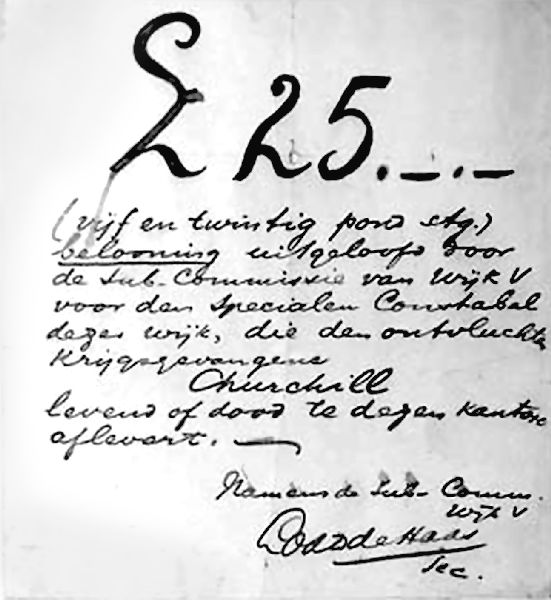 £ 25.–.–
(vijf en twintig pond stg.)
belooning uitgeloofd door
de Sub-Commissie van Wijk V
voor den Specialen Constabel
dezer wijk, die den ontvluchten
Krijgsgevangene
Churchill
levend of dood te dezen kantore
aflevert.
Namens de Sub-Comm.
Wijk V
de Haas
Sec.